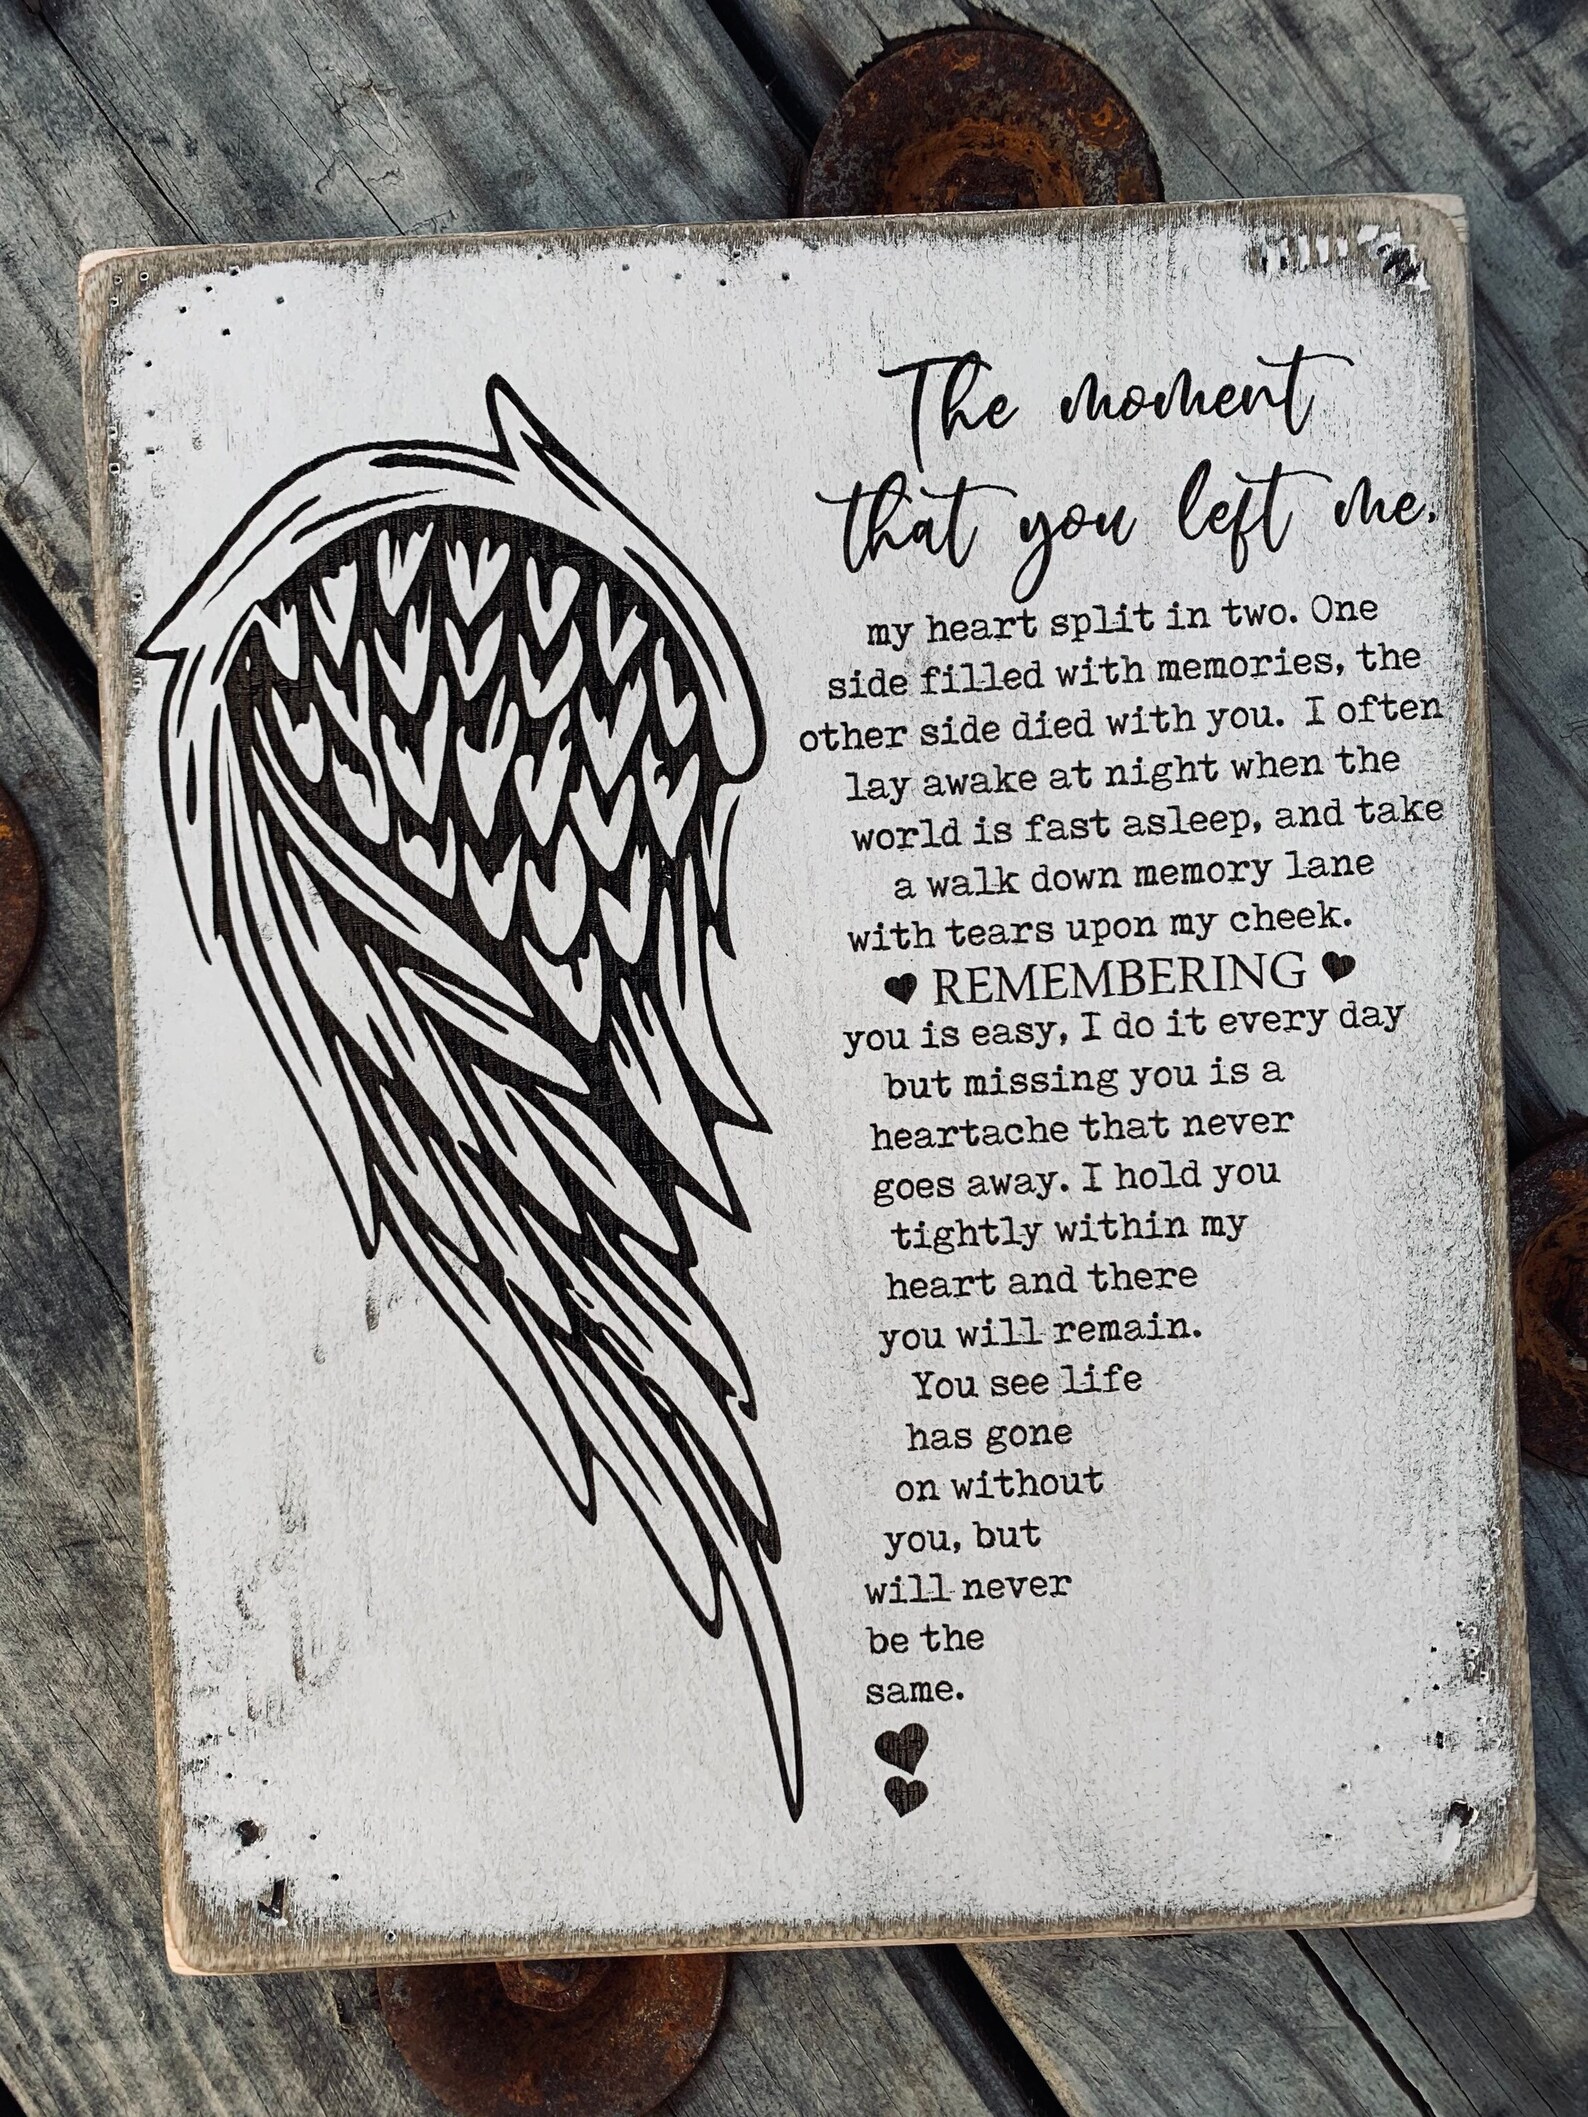 The moment
that you left me,
my heart split in two. One
side filled with memories, the
other side died with you. I often
lay awake at night when the
world is fast asleep, and take
a walk down memory lane
with tears upon my cheek.
♥ REMEMBERING ♥
you is easy, I do it every day
but missing you is a
heartache that never
goes away. I hold you
tightly within my
heart and there
you will remain.
You see life
has gone
on without
you, but
will never
be the
same.